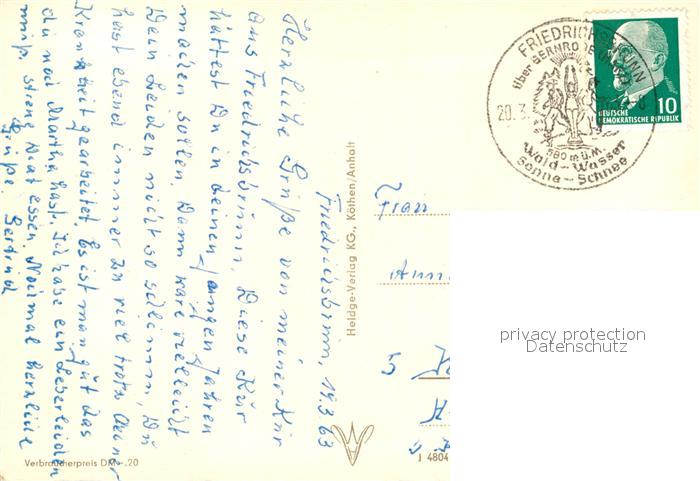 Friedrichsbrunn, 19.3.63
Herzliche Grüße von meiner Kur
aus Friedrichsbrunn. Diese Kür
hättest Du in deinen jungen Jahren
machen sollen. Dann wäre vielleicht
Dein Leiden nicht so schlimm, Du
hast ebend immer zu viel trotz deiner
Krankheit gearbeitet. Es ist man gut das
du noch Martha hast. Ich habe ein Leberleiden
muß strenge Diät essen. Nochmal herzliche
Grüße. Gertrud
Verbraucherpreis DM -.20
Heldge-Verlag KG., Köthen/Anhalt
J 4804
FRIEDRICHSBRUNN
über BERNRODE
20.3.
580 m ü.M.
Wald-Wasser
Sonne-Schnee
10
DEUTSCHE
DEMOKRATISCHE REPUBLIK
Frau
5
privacy protection
Datenschutz